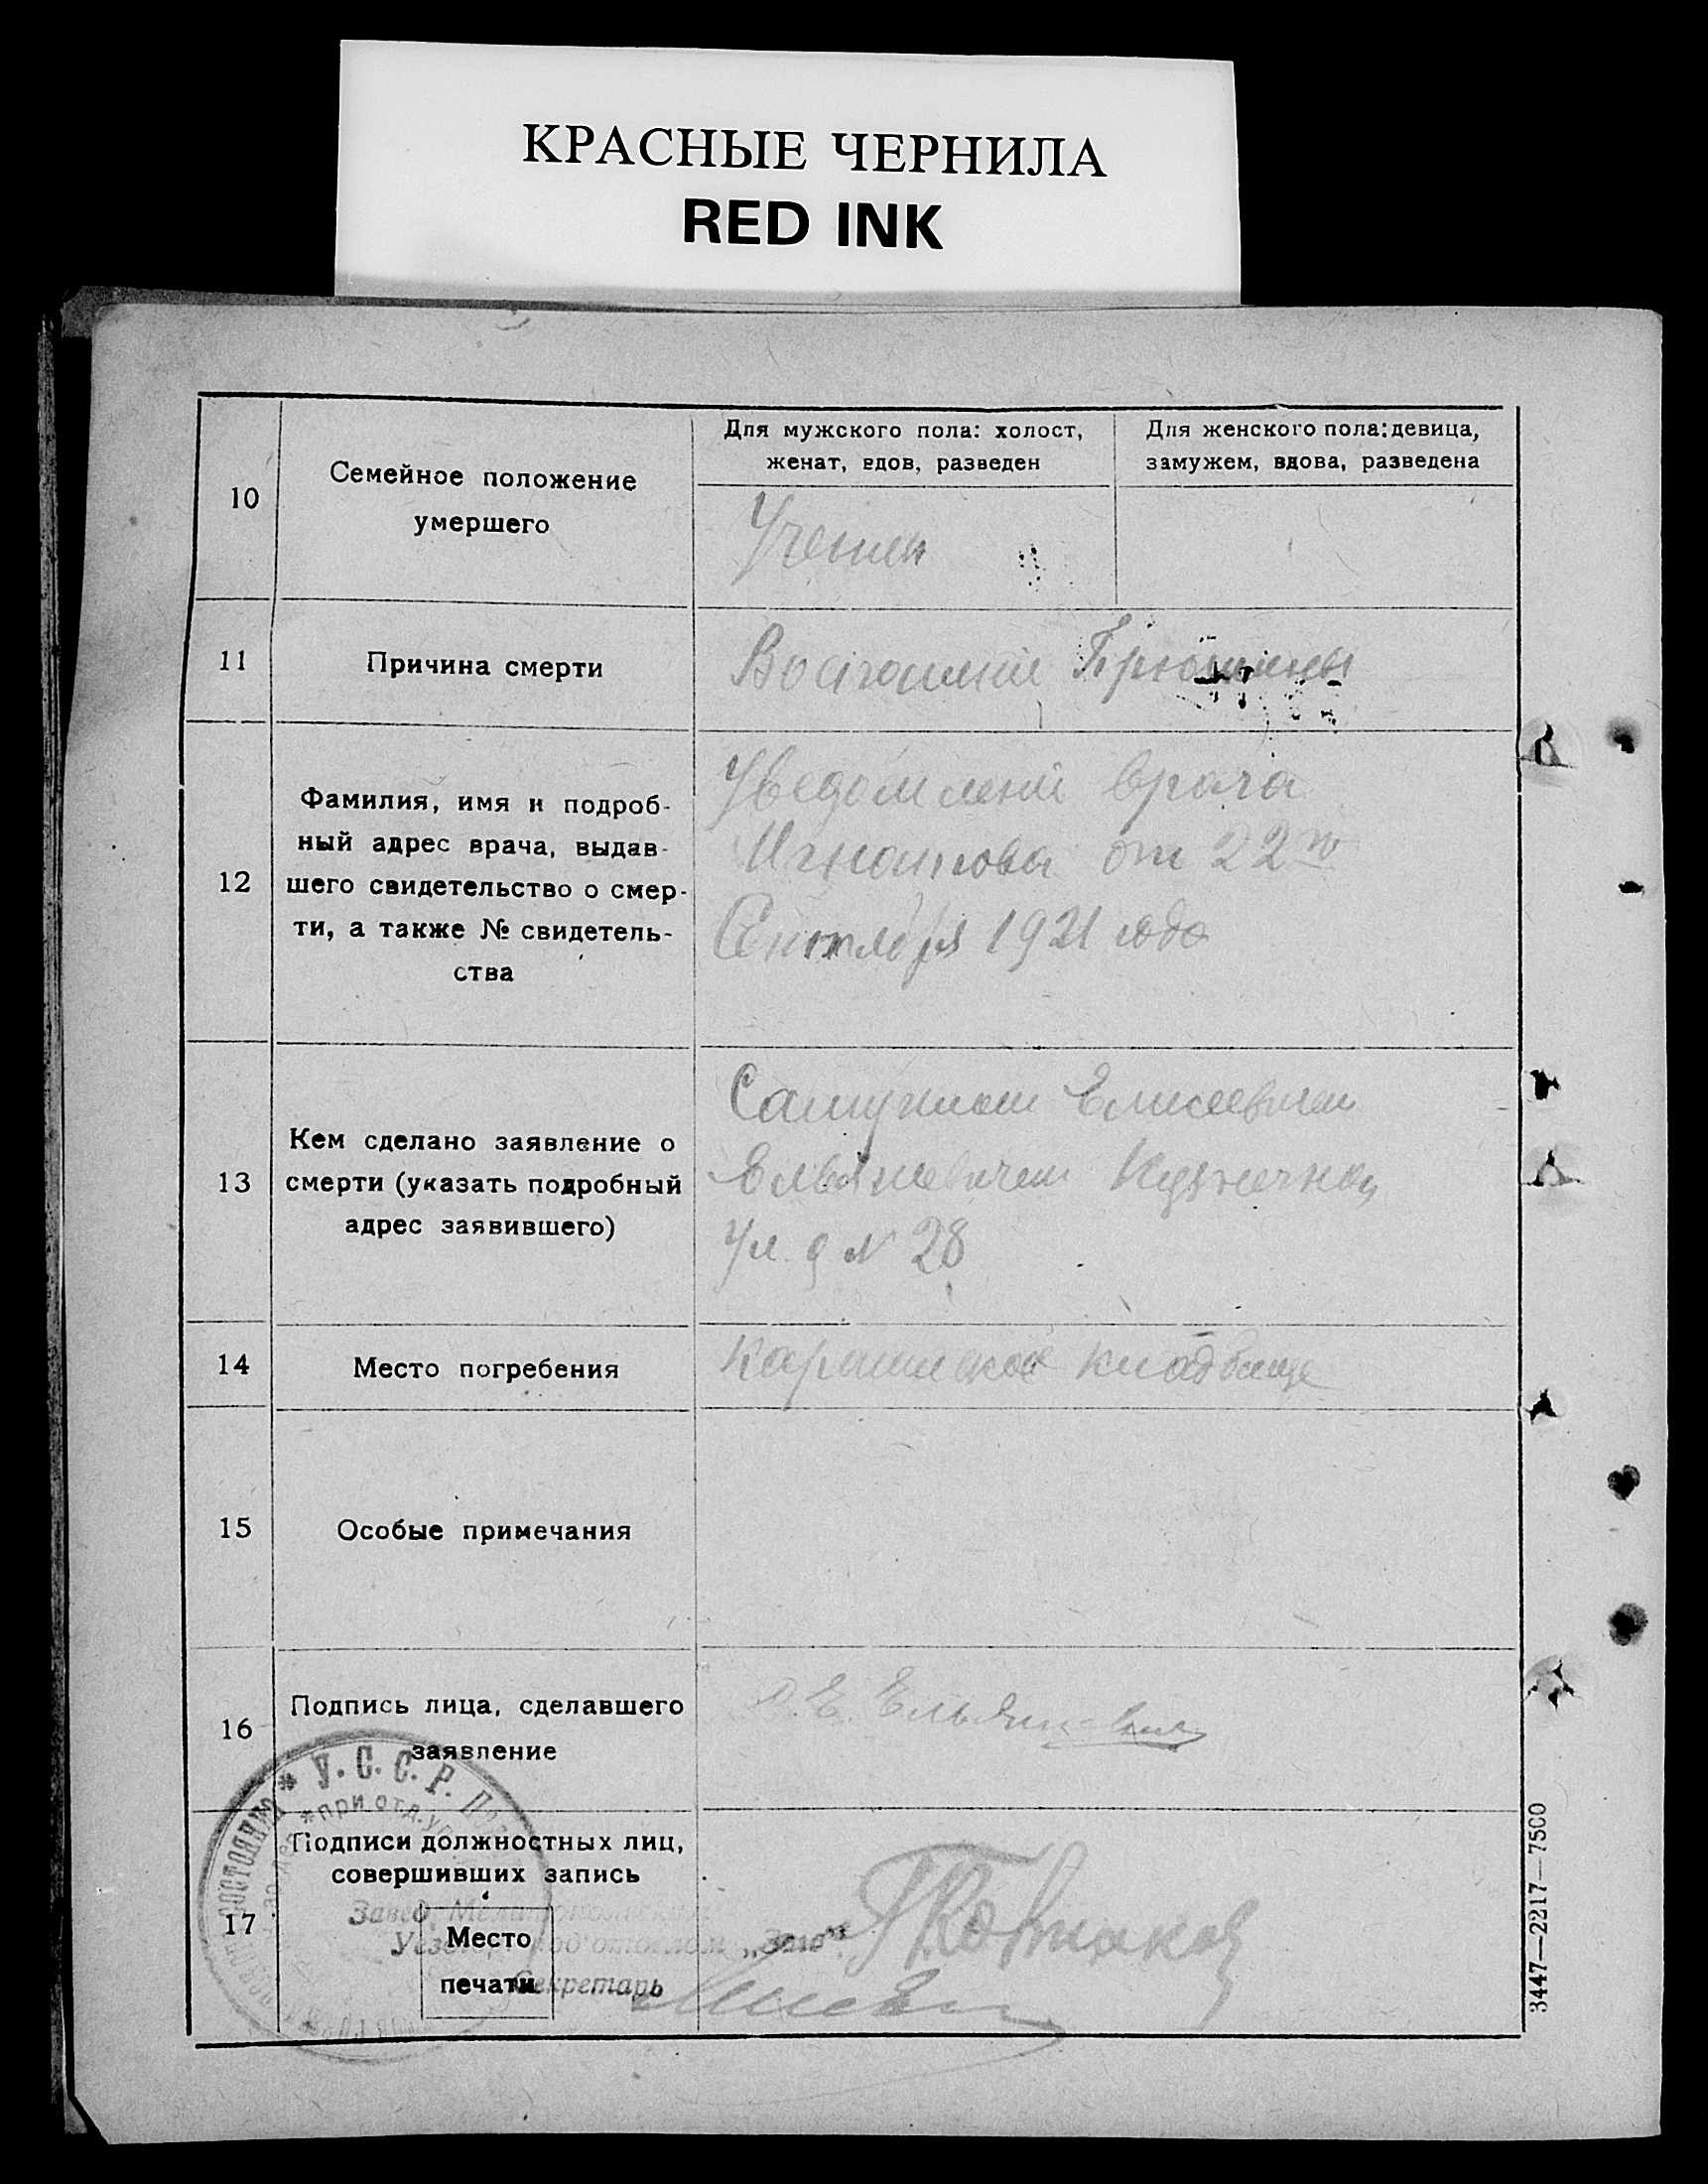 КРАСНЫЕ ЧЕРНИЛА
RED INK
10
Семейное положение
умершего
Для мужского пола: холост,
женат, вдов, разведен
Для женского пола: девица,
замужем, вдова, разведена
11
Причина смерти
Брюшины
12
Фамилия, имя и подроб-
ный адрес врача, выдав-
шего свидетельство о смер-
ти, а также № свидетель-
ства
врача
Игнатова от 22го
Сентября 1921 года
13
Кем сделано заявление о
смерти (указать подробный
адрес заявившего)
Самуилом Елисеевичем
Ельяшевичем Кузнечная
Ул. д № 28
14
Место погребения
Караимское кладбище
15
Особые примечания
16
Подпись лица, сделавшего
заявление
С. Е. Ельяшевич
17
Подписи должностных лиц,
совершивших запись
Место
печати
Завед. Мелитопольским
Уездн. под'отделом „Загс“
Секретарь
* У. С. С. Р.
* при отд. уп
состояния
3447—2217—7500